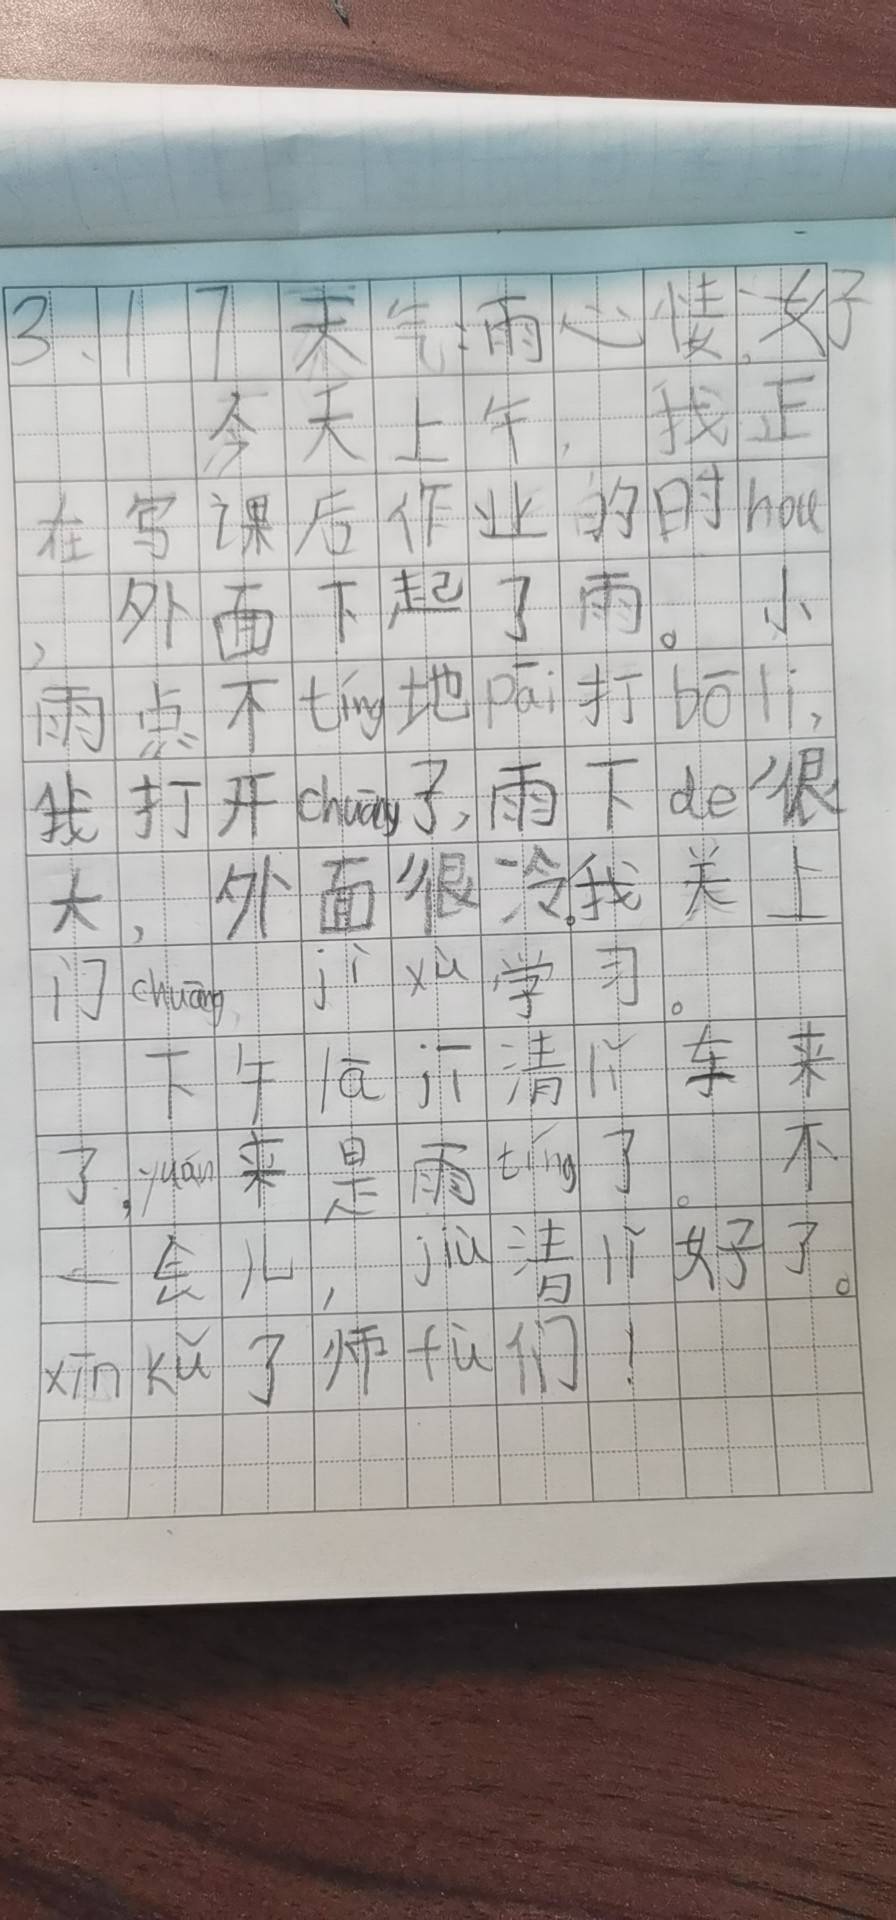 3.17天气:雨心情:好
今天上午,我正
在写课后作业的时hou
,外面下起了雨。小
雨点不tíng地pāi打bōli,
我打开chuāng了,雨下de很
大,外面很冷。我关上
门chuāng,jìxù学习。
下午lājī清lǐ车来
了,yuán来是雨tíng了。不
一会儿,jiù清lǐ好了。
xīnkǔ了师fù们!